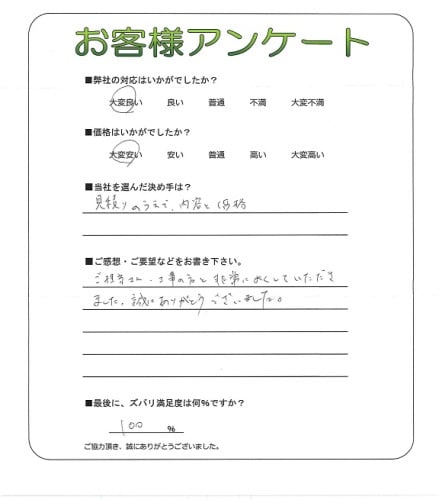 お客様アンケート
■弊社の対応はいかがでしたか？
大変良い 良い 普通 不満 大変不満
■価格はいかがでしたか？
大変安い 安い 普通 高い 大変高い
■当社を選んだ決め手は？
見積りのうえで、内容と価格
■ご感想・ご要望などをお書き下さい。
ご担当さん・工事の方と非常によくしていただき
ました。誠にありがとうございました。
■最後に、ズバリ満足度は何%ですか？
100 %
ご協力頂き、誠にありがとうございました。